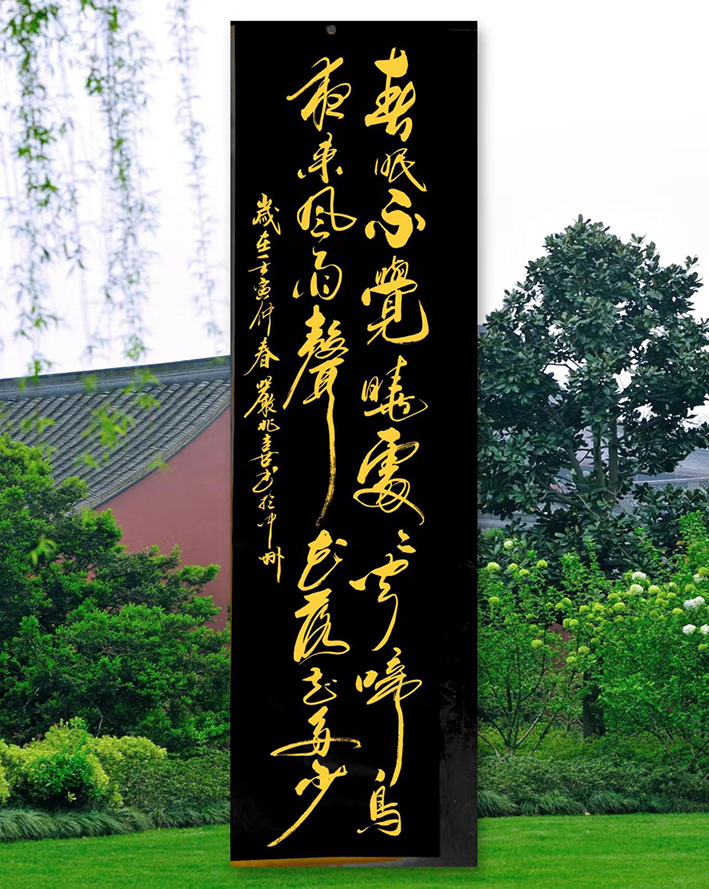 春眠不覺曉處々聞啼鳥
夜来風雨聲花落知多少
歲在壬寅仲春嚴兆喜書於中州